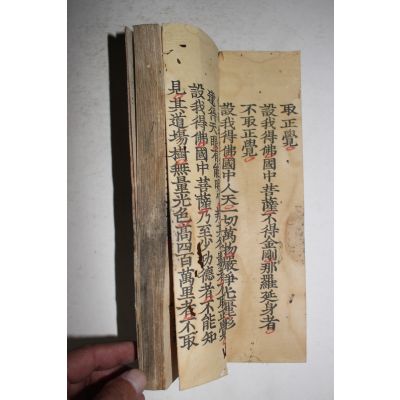 取正覺
設我得佛國中菩薩不得金剛那羅延身者
不取正覺
設我得佛國中人天一切萬物嚴淨光麗形
逮得天眼有能明了辨其名數者不取正覺
設我得佛國中菩薩乃至少功德者不能知
見其道場樹無量光色高四百萬里者不取